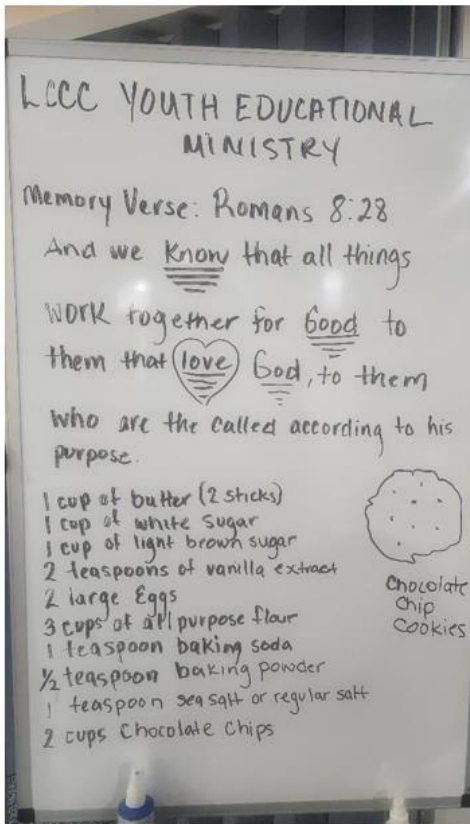 LCCC YOUTH EDUCATIONAL
MINISTRY
Memory Verse: Romans 8:28
And we Know that all things
work together for Good to
them that love God, to them
who are the called according to his
purpose.
1 cup of butter (2 sticks)
1 cup of white sugar
1 cup of light brown sugar
2 teaspoons of vanilla extract
2 large Eggs
3 cups of all purpose flour
1 teaspoon baking soda
½ teaspoon baking powder
1 teaspoon sea salt or regular salt
2 cups Chocolate Chips
Chocolate
Chip
Cookies